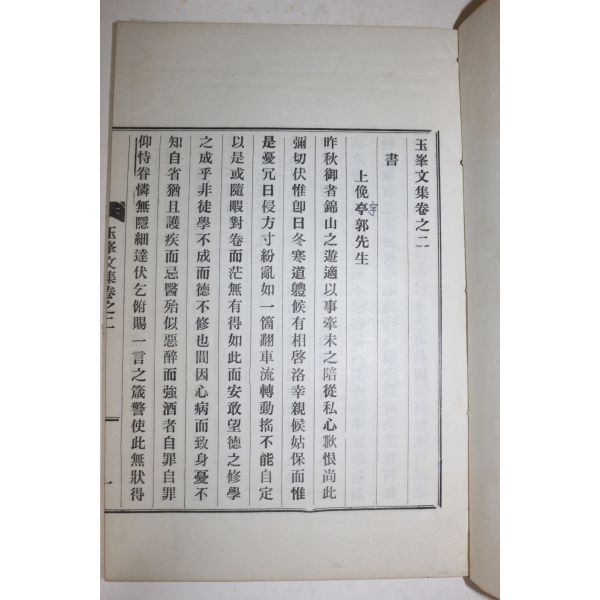 玉峯文集卷之二
書
上俛亭郭先生
宇
昨秋御者錦山之遊適以事牽未之陪從私心歉恨尚此
彌切伏惟卽日冬寒道軆候有相啓洛幸親候姑保而惟
是憂冗日侵方寸紛亂如一箇翻車流轉動搖不能自定
以是或隨暇對卷而茫無有得如此而安敢望德之修學
之成乎非徒學不成而德不修也間因心病而致身憂不
知自省猶且護疾而忌醫殆似惡醉而強酒者自罪自罪
仰恃眷憐無隱細達伏乞俯賜一言之箴警使此無狀得
玉峯文集卷之二
一